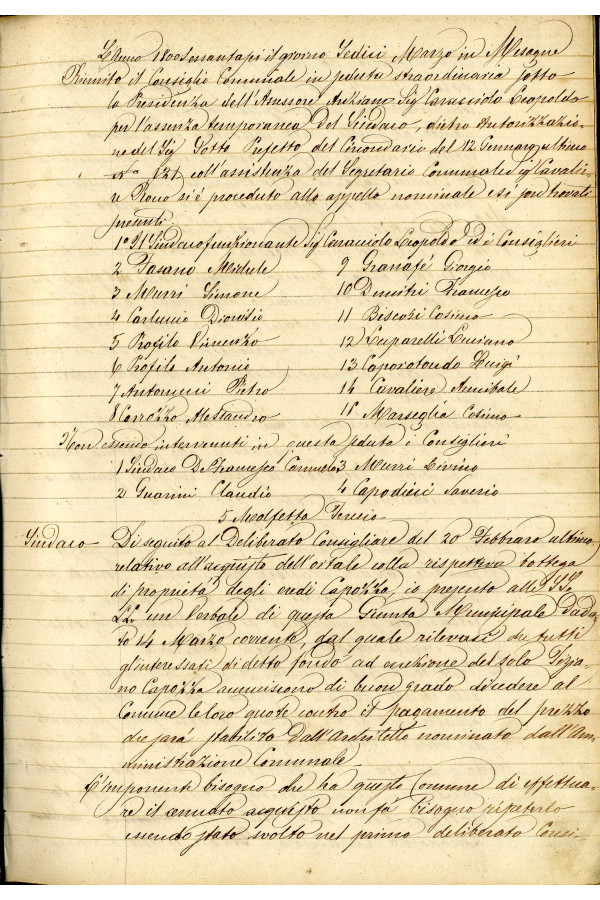 L'Anno 1800sessantasei il giorno Sedici Marzo in Mesagne
Riunito il Consiglio Comunale in seduta straordinaria sotto
la Presidenza dell'Assessore Anziano Sig Caracciolo Leopoldo
per l'assenza temporanea del Sindaco, dietro Autorizzazio-
ne del Sig Sotto Prefetto del Circondario del 12 Gennaro ultimo
N° 121 coll'assistenza del Segretario Comunale Sig Cavalie-
re Rocco si è proceduto allo appello nominale e si son trovati
presenti
1° Il Sindaco funzionante Sig Caracciolo Leopoldo ed i Consiglieri
2 Fasano Michele 9 Granafé Giorgio
3 Murri Simone 10 Dimitri Francesco
4 Carluccio Dionisio 11 Biscozi Cosimo
5 Profilo Vincenzo 12 Luparelli Luciano
6 Profilo Antonio 13 Caporotondo Luigi
7 Antonucci Pietro 14 Cavaliere Annibale
8 Correzzo Alessandro 15 Marseglia Cosimo
Non essendo intervenuti in questa seduta i Consiglieri
1 Sindaco De Francesco Carmelo 3 Murri Livino
2 Guarini Claudio 4 Capodieci Saverio
5 Molfetta Teresio
Sindaco Di seguito al Deliberato Consigliare del 20 Febbraro ultimo
relativo all'acquisto dell'ortale colla rispettiva bottega
di proprietà degli eredi Capozza, io presento alle SS
LL un Verbale di questa Giunta Municipale Dada-
to 14 Marzo corrente, dal quale rilevasi che tutti
gl'interessati di detto fondo ad eccezione del solo Tizia-
no Capozza annuiscono di buon grado di cedere al
Comune le loro quote contro il pagamento del prezzo
che sarà stabilito dall'Architetto nominato dall'Am-
ministrazione Comunale
L'imponente bisogno che ha questo Comune di effettua-
re il cennato acquisto non fa bisogno ripeterlo
essendo stato svolto nel primo deliberato Consi-